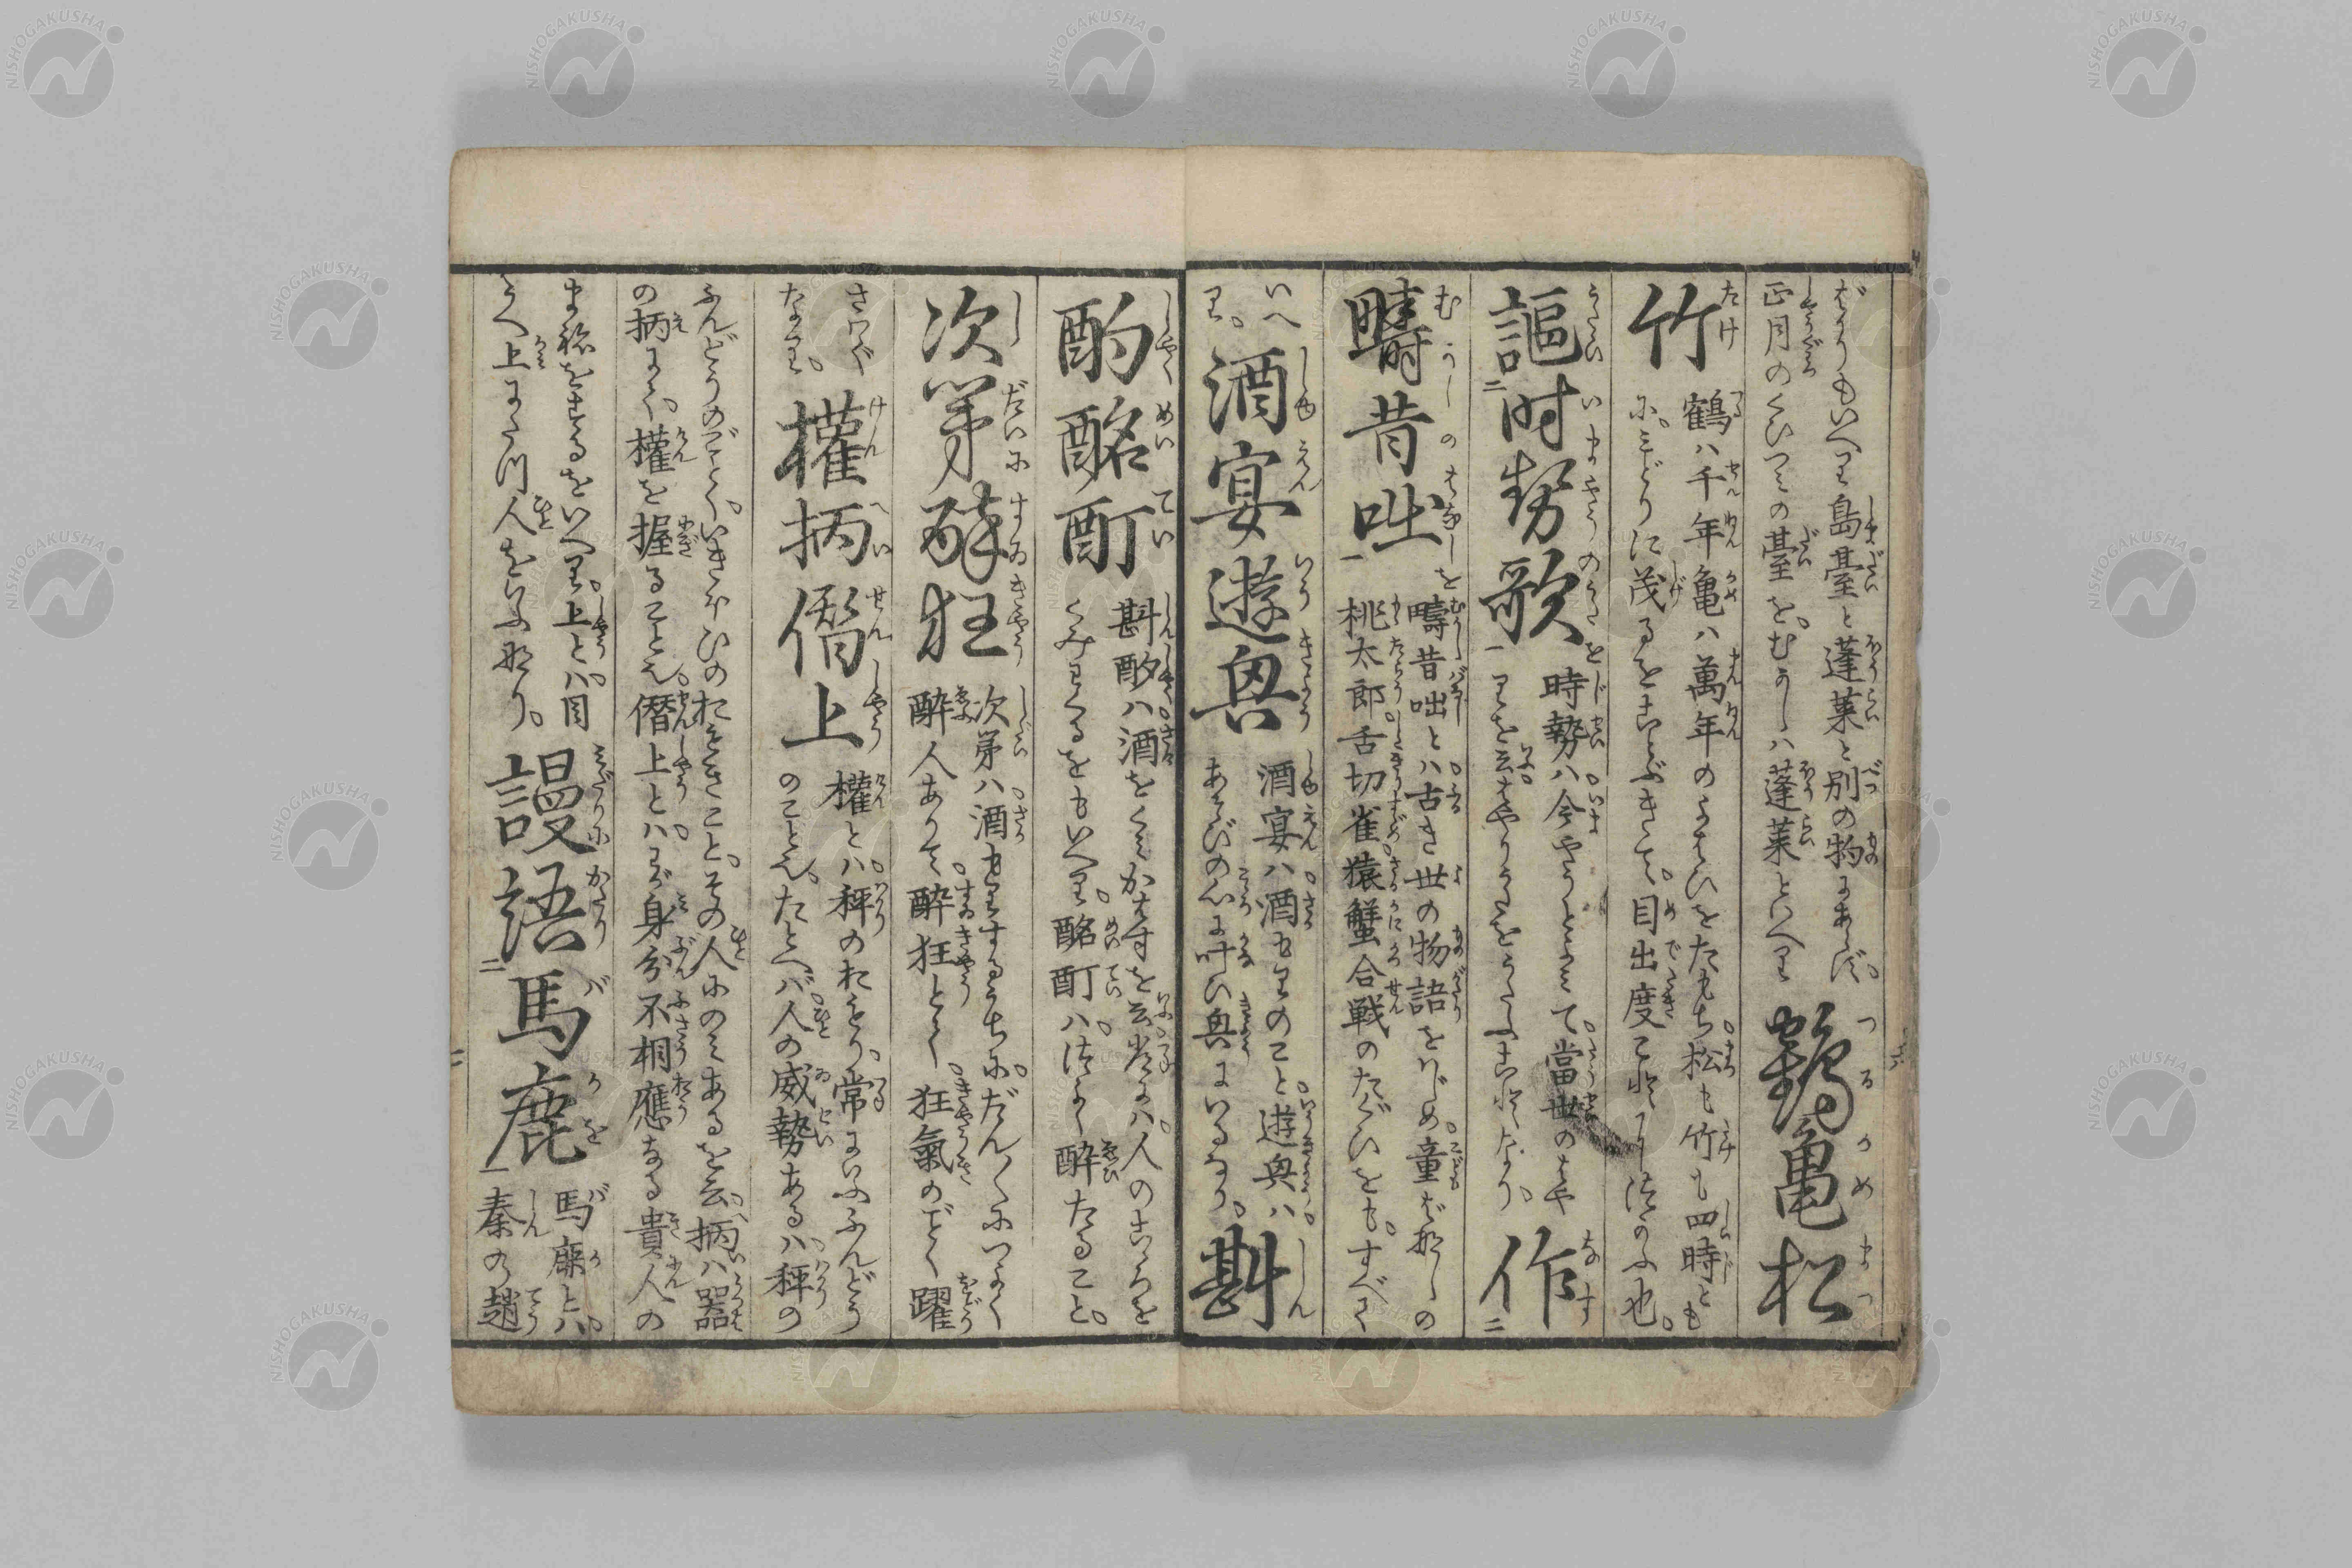 ばかりもいへり島臺と蓬莱と別の物にあらず。
正月のくひつみの臺を。むかしハ蓬莱といへり
鶴亀松
竹
鶴ハ千年亀ハ萬年のよはひをたもち。松も竹も四時とも
に。みどりに茂るをことぶきて。目出度こと
謳時勢歌
時勢ハ今やうとよみて。當世のはや
りを云。はやりうたをうたふことなり。
作
疇昔咄
疇昔咄とハ。古き世の物語をはじめ。童ばなしの
桃太郎舌切雀。猿蟹合戦のたぐひをも。すべて
いへ
り。
酒宴遊興
酒宴ハ。酒もりのこと。遊興ハ。
あそびの心に叶ひ興にいるなり。
斟
酌酩酊
斟酌ハ。酒をくみかはすを云。常にハ。人のこゝろを
くみわくるをもいへり。酩酊ハ。つよく酔たること。
次第酔狂
次第ハ。酒もりするうちに。だん〱につよく
酔人ありて。酔狂とハ。狂氣のごとく躍
さわぐ
なり。
權柄僭上
權とハ。秤のおもり。常にいふふんどう
のこと也。たとへバ。人の威勢あるハ。秤の
ふんどうのごとく。いきほひのおもきこと。その人にのミあるを云。柄ハ器
の柄にて。權を握ること也。僭上とハ。わが身分不相應なる貴人の
まねをするをいへり。上とハ。目
うへ上にたつ人をいふなり。
謾語馬鹿
馬鹿とハ。
秦の趙
NISHOGAKUSHA